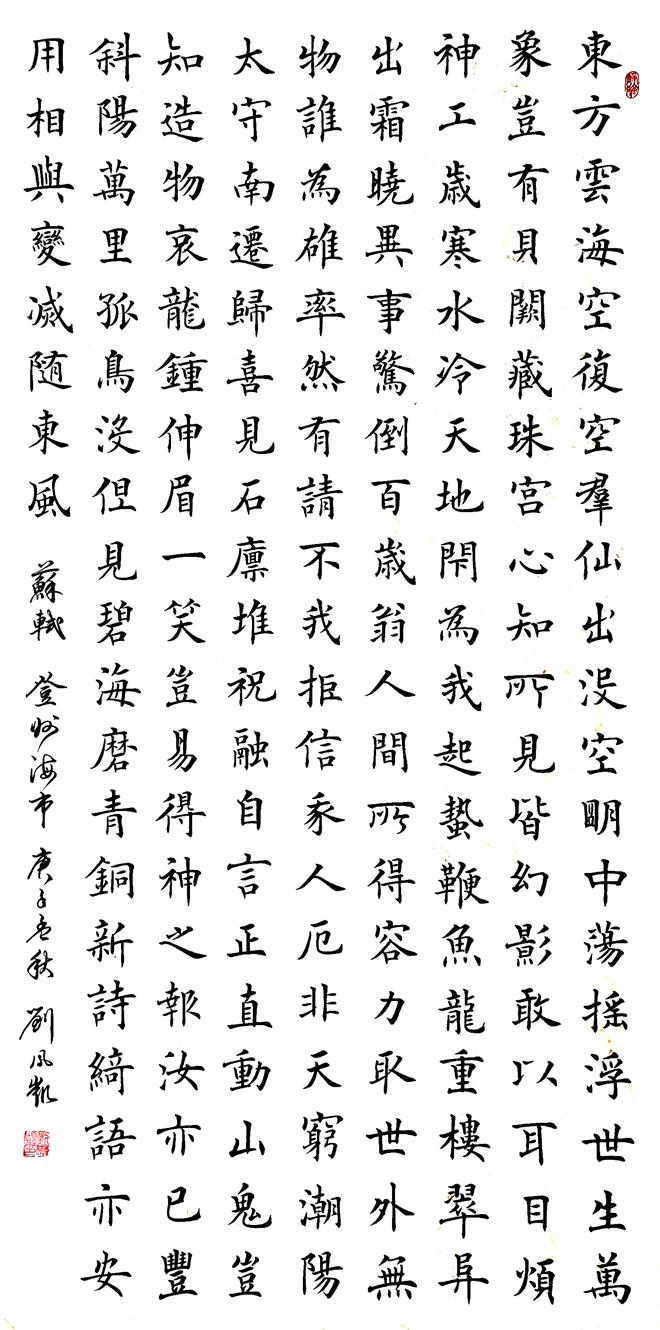 東方雲海空復空羣仙出没空朙中蕩摇浮世生萬
象豈有貝闕藏珠宮心知所見皆幻影敢以耳目煩
神工歲寒水冷天地閇為我起蟄鞭魚龍重樓翠阜
出霜曉異事驚倒百歲翁人間所得容力取世外無
物誰為雄率然有請不我拒信我人厄非天窮潮陽
太守南遷歸喜見石廪堆祝融自言正直動山鬼豈
知造物哀龍鍾伸眉一笑豈易得神之報汝亦已豐
斜陽萬里孤鳥没但見碧海磨青銅新詩綺語亦安
用相與變滅随東風 蘇軾 登州海市 庚子孟秋 劉凤凱